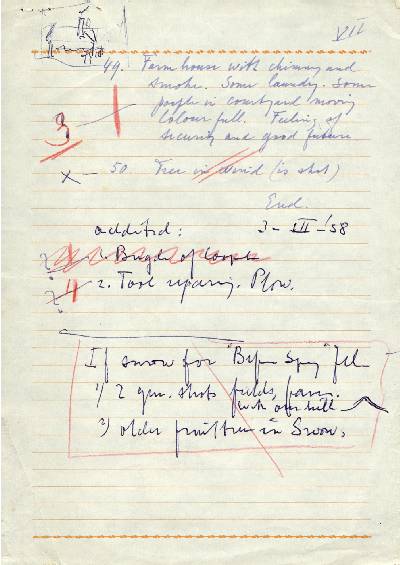 VII
49. Farm house with chimney and
smoke. Some laundry. Some
people in courtyard moving
Colour full. Feeling of
security and good future
3 1
x — 50. Tree in wind (is shot)
End.
additional: 3 - III - '58
1. Bugle of
4 2. Tool reparing. Plow.
If snow for "Before Spring"
1) 2 gen. shots fields, farm.
with one hill
2) older fruittree in Snow.